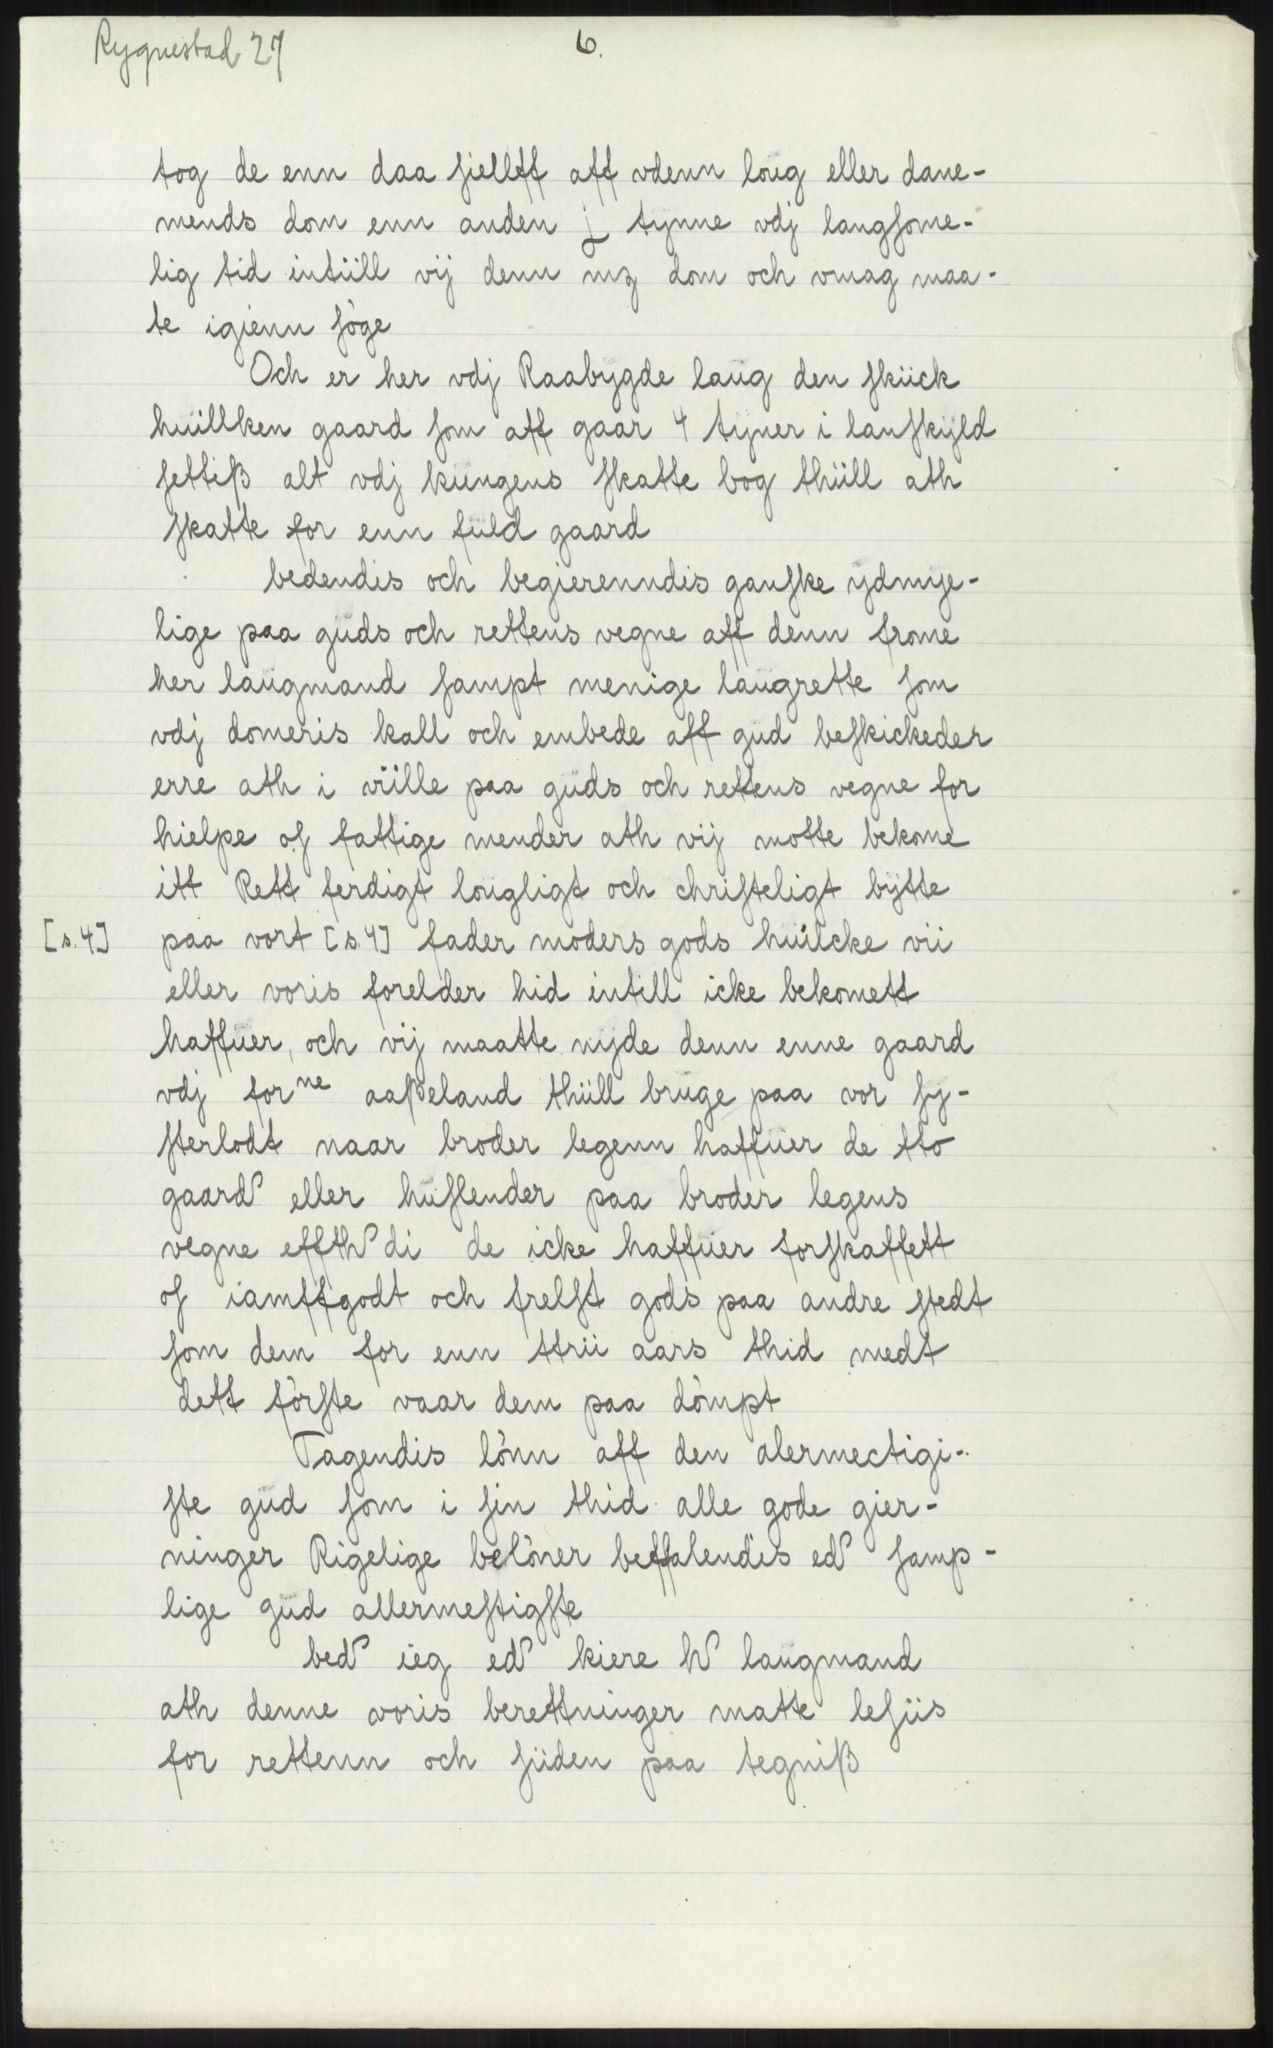 Rygnestad 27
6.
tog de enn daa siellff aff vdenn loug eller dane-
mends dom enn anden j tynne vdj langsome-
lig tid intüll vij denn mz dom och vmag maa-
te igienn söge
Och er her vdj Raabygde laüg den skück
huillken gaard som aff gaar 4 tyner i lanskyld
settiß alt vdj küngens skatte bog thüll ath
skatte for enn füld gaard
bedendis och begierenndis ganske ydmye-
lige paa güds och rettens vegne aff denn frome
her laügmand sampt menige laügrette som
vdj domeris kall och embede aff gud beskickeder
erre ath i vülle paa güds och rettens vegne for
hielpe os fattige mender ath vij motte bekome
itt Rett ferdigt lougligt och christeligt bytte
[s.4] paa vort [s.4] fader moders gods huilcke vii
eller voris forelder hid intill icke bekomett
haffüer, och vij maatte nyde denn enne gaard
vdj forne aaßeland thüll brüge paa vor sy-
sterlodt naar broder legenn haffüer de tto
gaard eller huslender paa broder legens
vegne effth di de icke haffüer forskaffett
os iamffgodt och frelst gods paa andre stedt
som dem for enn ttrii aars thid medt
dett förste vaar dem paa dömpt
Tagendis lönn aff den alermectigi-
ste gud som i sin thid alle gode gier-
ninger Rigelige belöner beffalendis ed samp-
lige gud allermestigste
bed ieg ed kiere h laügmand
ath denne voris berettninger matte lesiis
for rettenn och siiden paa tegniß